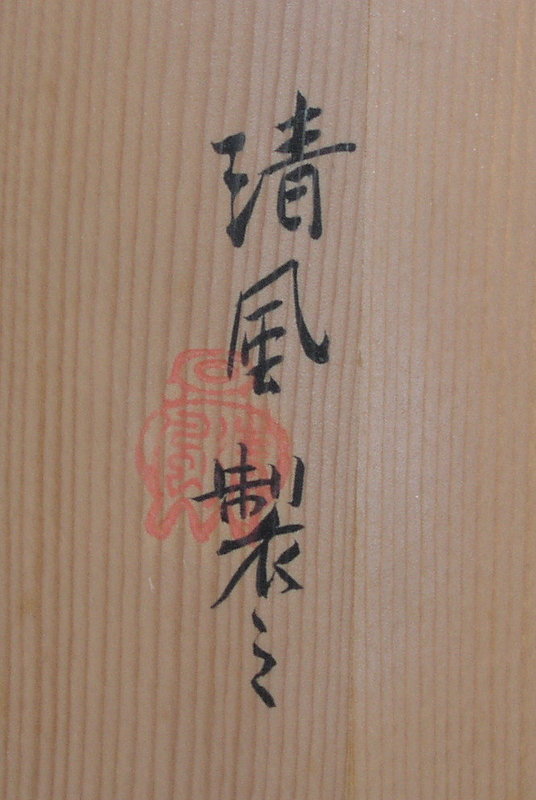 清風製之